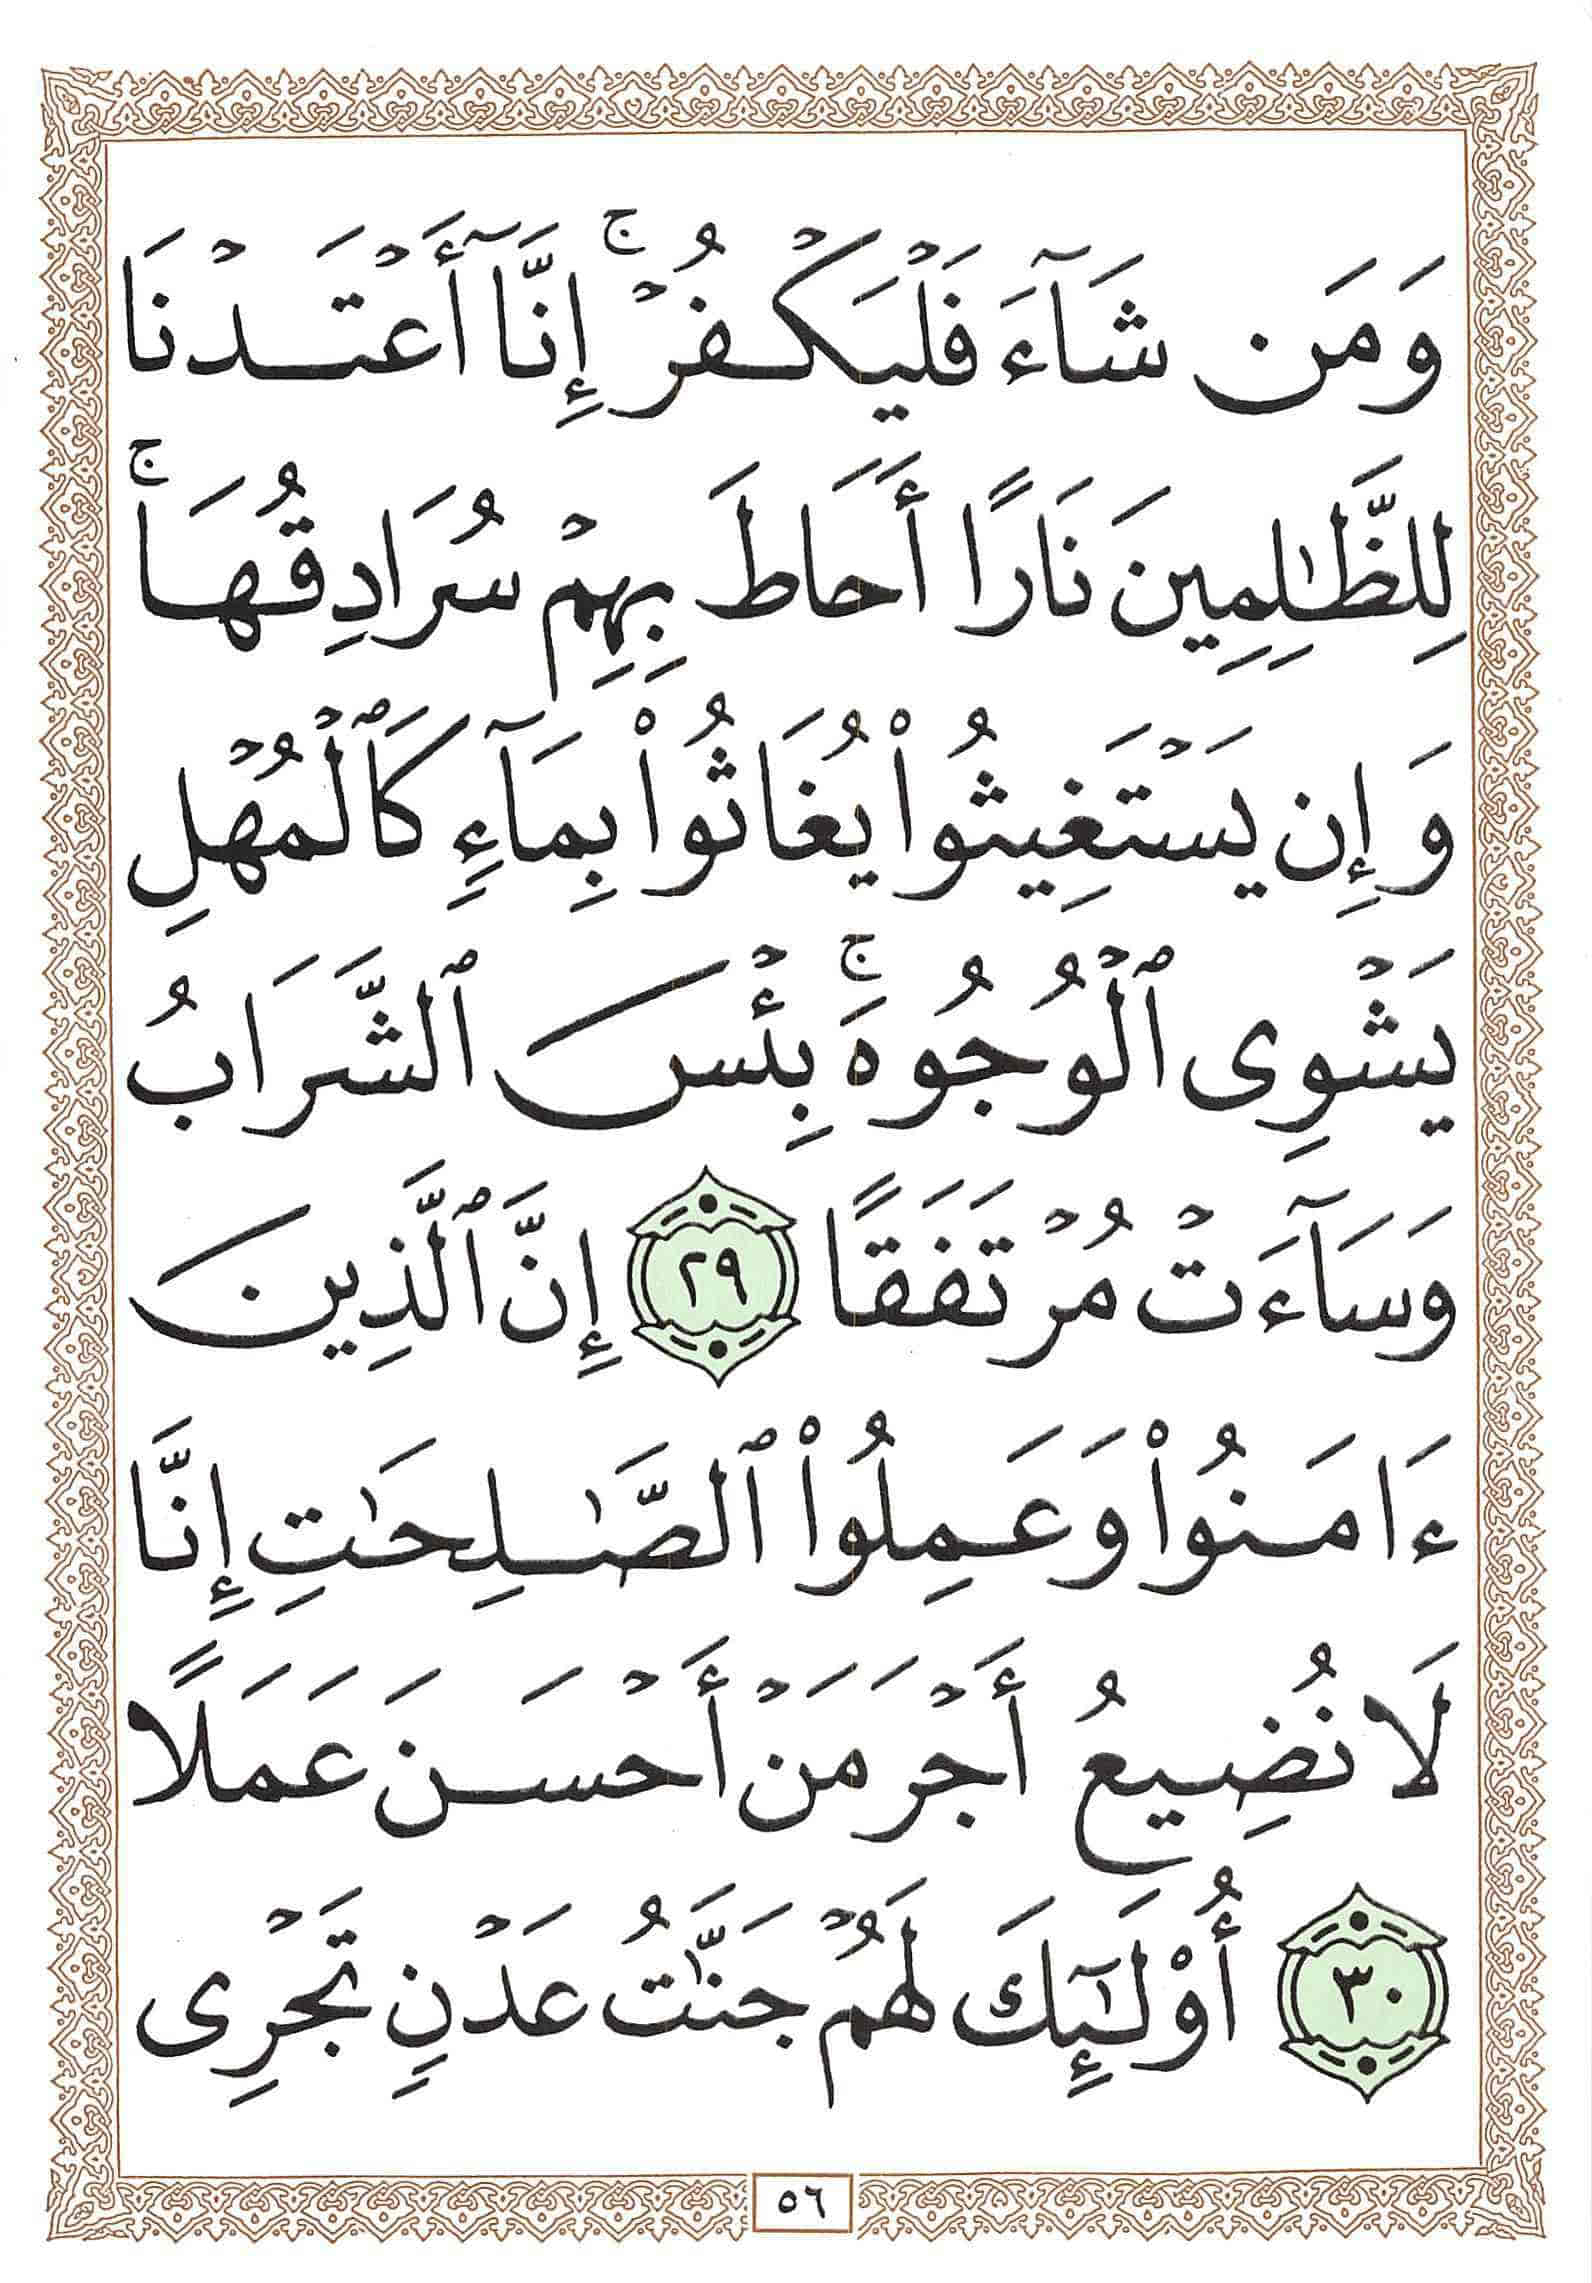 وَمَن شَآءَ فَلۡيَكۡفُرۡۚ إِنَّآ أَعۡتَدۡنَا
لِلظَّٰلِمِينَ نَارًا أَحَاطَ بِهِمۡ سُرَادِقُهَاۚ
وَإِن يَسۡتَغِيثُواْ يُغَاثُواْ بِمَآءٖ كَٱلۡمُهۡلِ
يَشۡوِي ٱلۡوُجُوهَۚ بِئۡسَ ٱلشَّرَابُ
وَسَآءَتۡ مُرۡتَفَقًا ٢٩ إِنَّ ٱلَّذِينَ
ءَامَنُواْ وَعَمِلُواْ ٱلصَّٰلِحَٰتِ إِنَّا
لَا نُضِيعُ أَجۡرَ مَنۡ أَحۡسَنَ عَمَلًا
٣٠ أُوْلَٰٓئِكَ لَهُمۡ جَنَّٰتُ عَدۡنٖ تَجۡرِي
٥٦